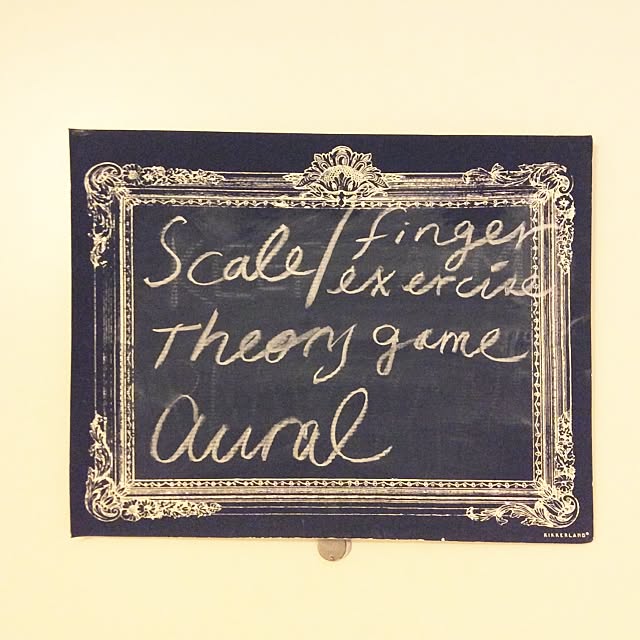 Scale/finger
exercise
Theory game
aural
KIKKERLAND®